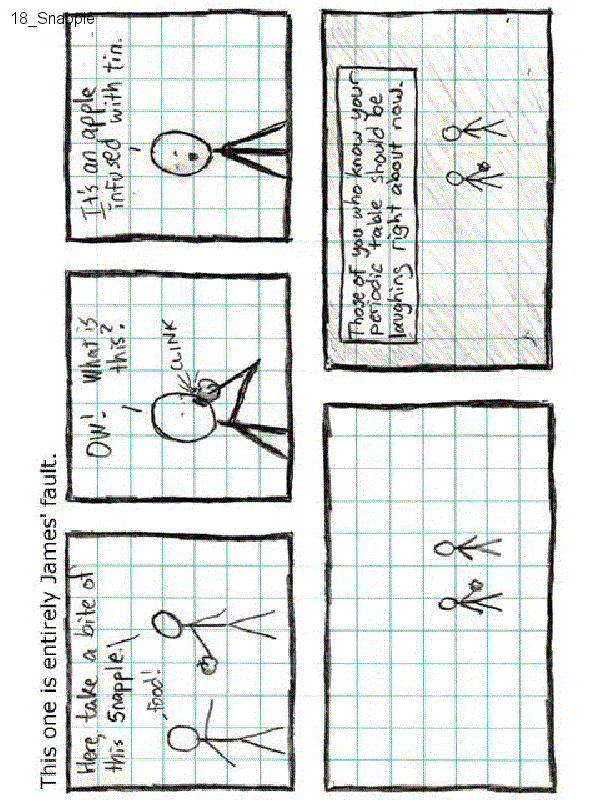 18_Snapple
This one is entirely James' fault.
Here, take a bite of
this Snapple.
Food!
OW! What is
this?
CLINK
It's an apple
infused with tin.
Those of you who know your
periodic table should be
laughing right about now.